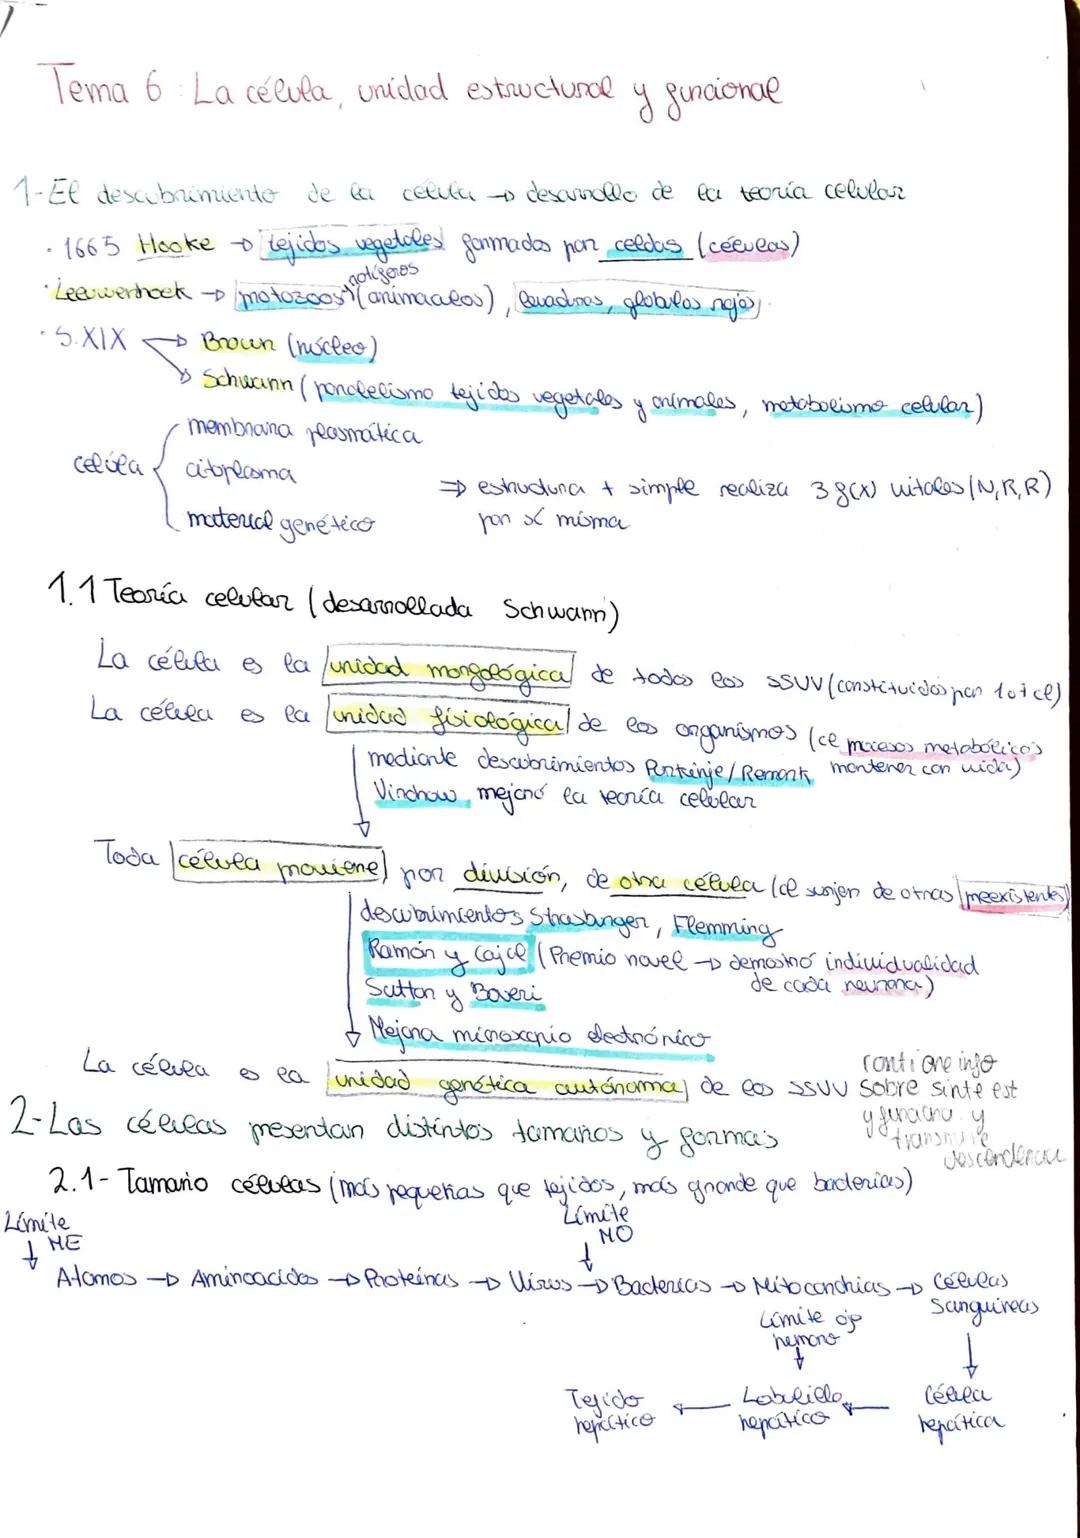 Tema 6: La célula, unidad estructural y funcional
1-El descubrimiento de la célula → desarrollo de la teoría celular
· 1665 Hooke → tejidos vegetales formados por celdas (células)
· Leeuwenhoek → protozoos (animáculos), levaduras, globulos rojos
· S.XIX → Brown (núcleo)
→ Schwann (paralelismo tejidos vegetales y animales, metabolismo celular)
célula { membrana plasmática
citoplasma
material genético
⇒ estructura + simple realiza 3 f(x) vitales (N,R,R)
por sí misma
1.1 Teoría celular (desarrollada Schwann)
La célula es la unidad morfológica de todos los SSUV (constituidos por 1 o + cel)
La célula es la unidad fisiológica de los organismos (ce procesos metabólicos
mantener con vida)
mediante descubrimientos Purkinje/Remark
Virchow mejoró la teoría celular
Toda célula proviene por división, de otra célula (cel surjen de otras preexistentes)
descubrimientos Strasburger, Flemming
Ramón y Cajal (Premio novel → demostró individualidad
de cada neurona)
Sutton y Boveri
Mejora microscopio electrónico
La célula es la unidad genética autónoma de los SSUV
contiene info
sobre sinte est
y funciona. y
transmite
descendencia
2-Las células presentan distintos tamaños y formas
2.1- Tamaño células (más pequeñas que tejidos, más grande que bacterias)
Límite
ME
↓
Límite
MO
↓
Atomos → Aminoacidos → Proteínas → Virus → Bacterias → Mitocondrias → Células
Sanguíneas
Límite ojo
humano
↓
Tejido
hepático ← Lobulillo
hepático ← Célula
hepática